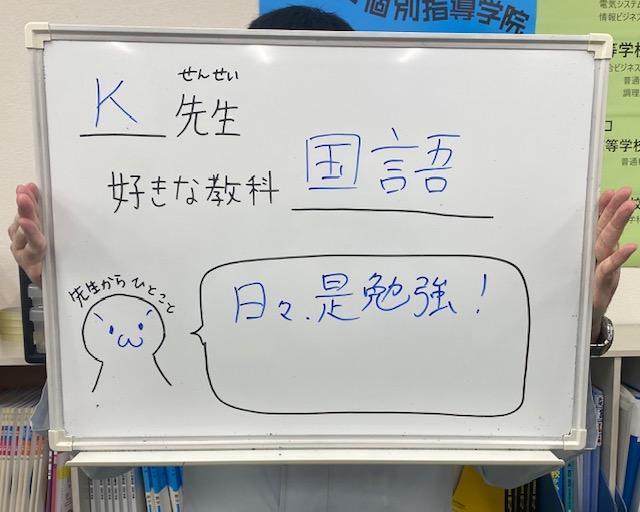 個別指導学院
電気システム
情報ビジネス
等学校
合ビジネス
普通
調理
等学校
普通
せんせい
K 先生
好きな教科 国語
先生からひとこと
日々、是勉強!